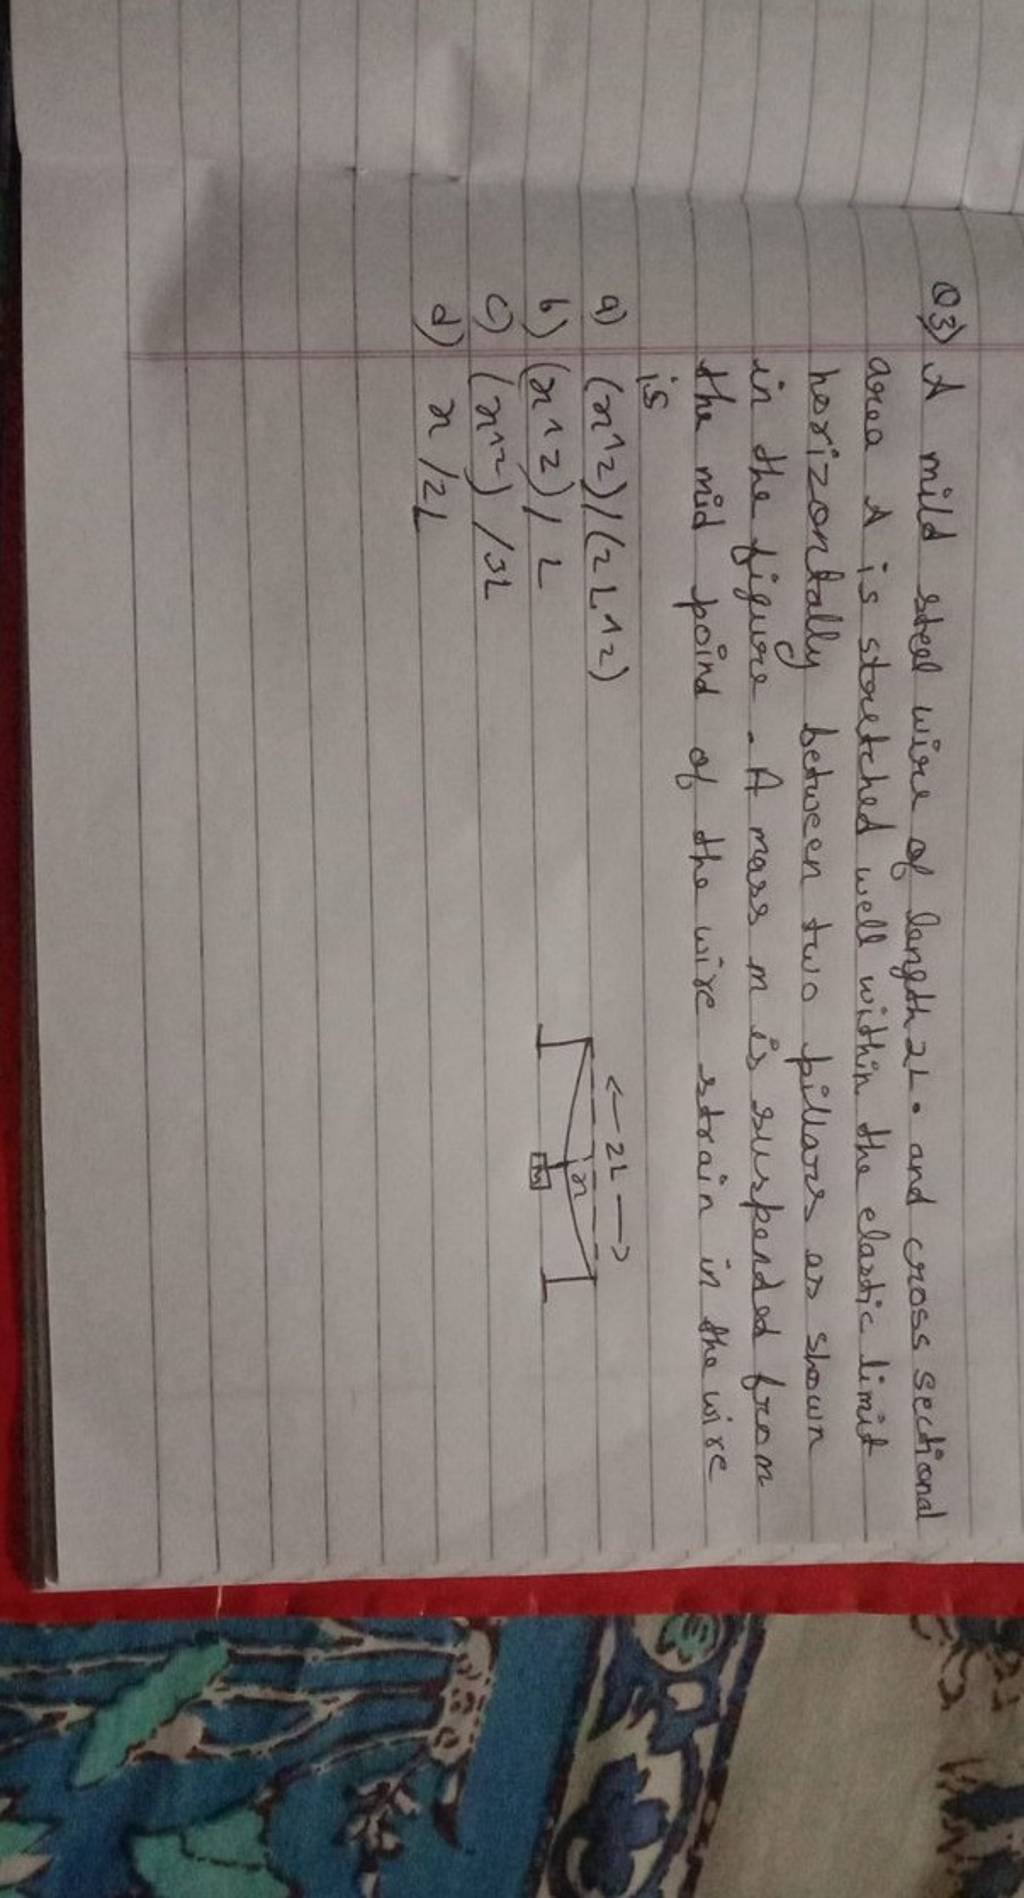 Q3) A mild steel wire of length 2L. and cross sectional
area A is stretched well within the elastic limit
horizontally between two pillars as shown
in the figure. A mass m is suspended from
the mid poind of the wire strain in the wire
is
a) (x^2)/(2L^2)
b) (x^2)/L
c) (x^2)/3L
d) x/2L
← 2L →
x
m